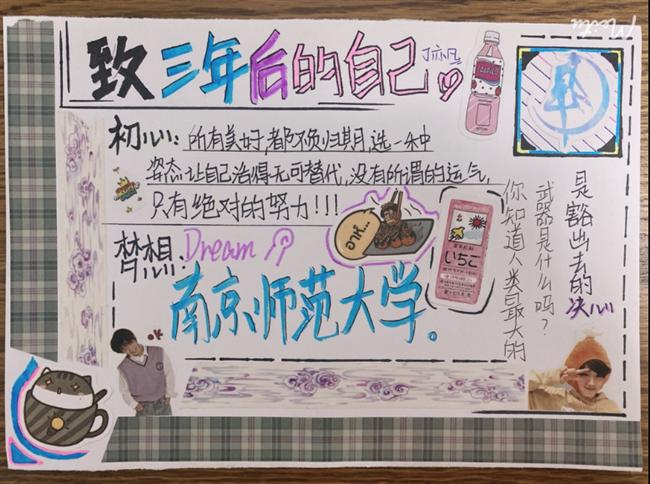 致三年后的自己
丁亦凡
初心:所有美好,都不负归期,选一种
姿态让自己活得无可替代,没有所谓的运气,
只有绝对的努力!!!
梦想:Dream
南京师范大学。
你知道人类最大的
武器是什么吗?
是豁出去的决心
いちご
OK
Meitu